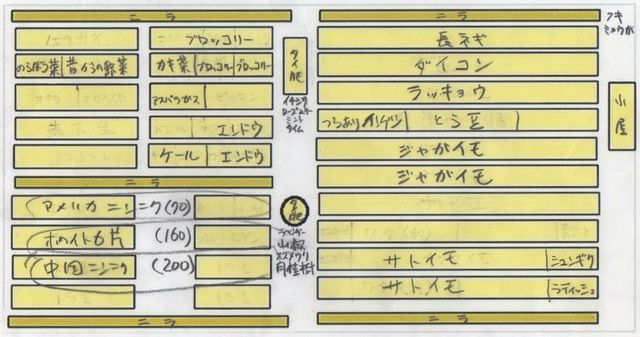 ニラ
ブロッコリー
のらぼう菜 昔からの野菜
カキ菜 ブロッコリー ブロッコリー
アスパラガス ピーマン
エンドウ
ケール エンドウ
ニラ
アメリカニンニク(70)
ホワイト6片 (160)
中国ニンニク (200)
トラミ
ニラ
タイ肥
イチジク
ローズマリー
ミント
タイム
タイ肥
ラベンダー
山椒
スズメウリ
月桂樹
ニラ
長ネギ
ダイコン
ラッキョウ
つるありインゲン とら豆
ジャガイモ
ジャガイモ
サトイモ シュンギク
サトイモ ラディッシュ
ニラ
フキ
ミョウガ
小屋